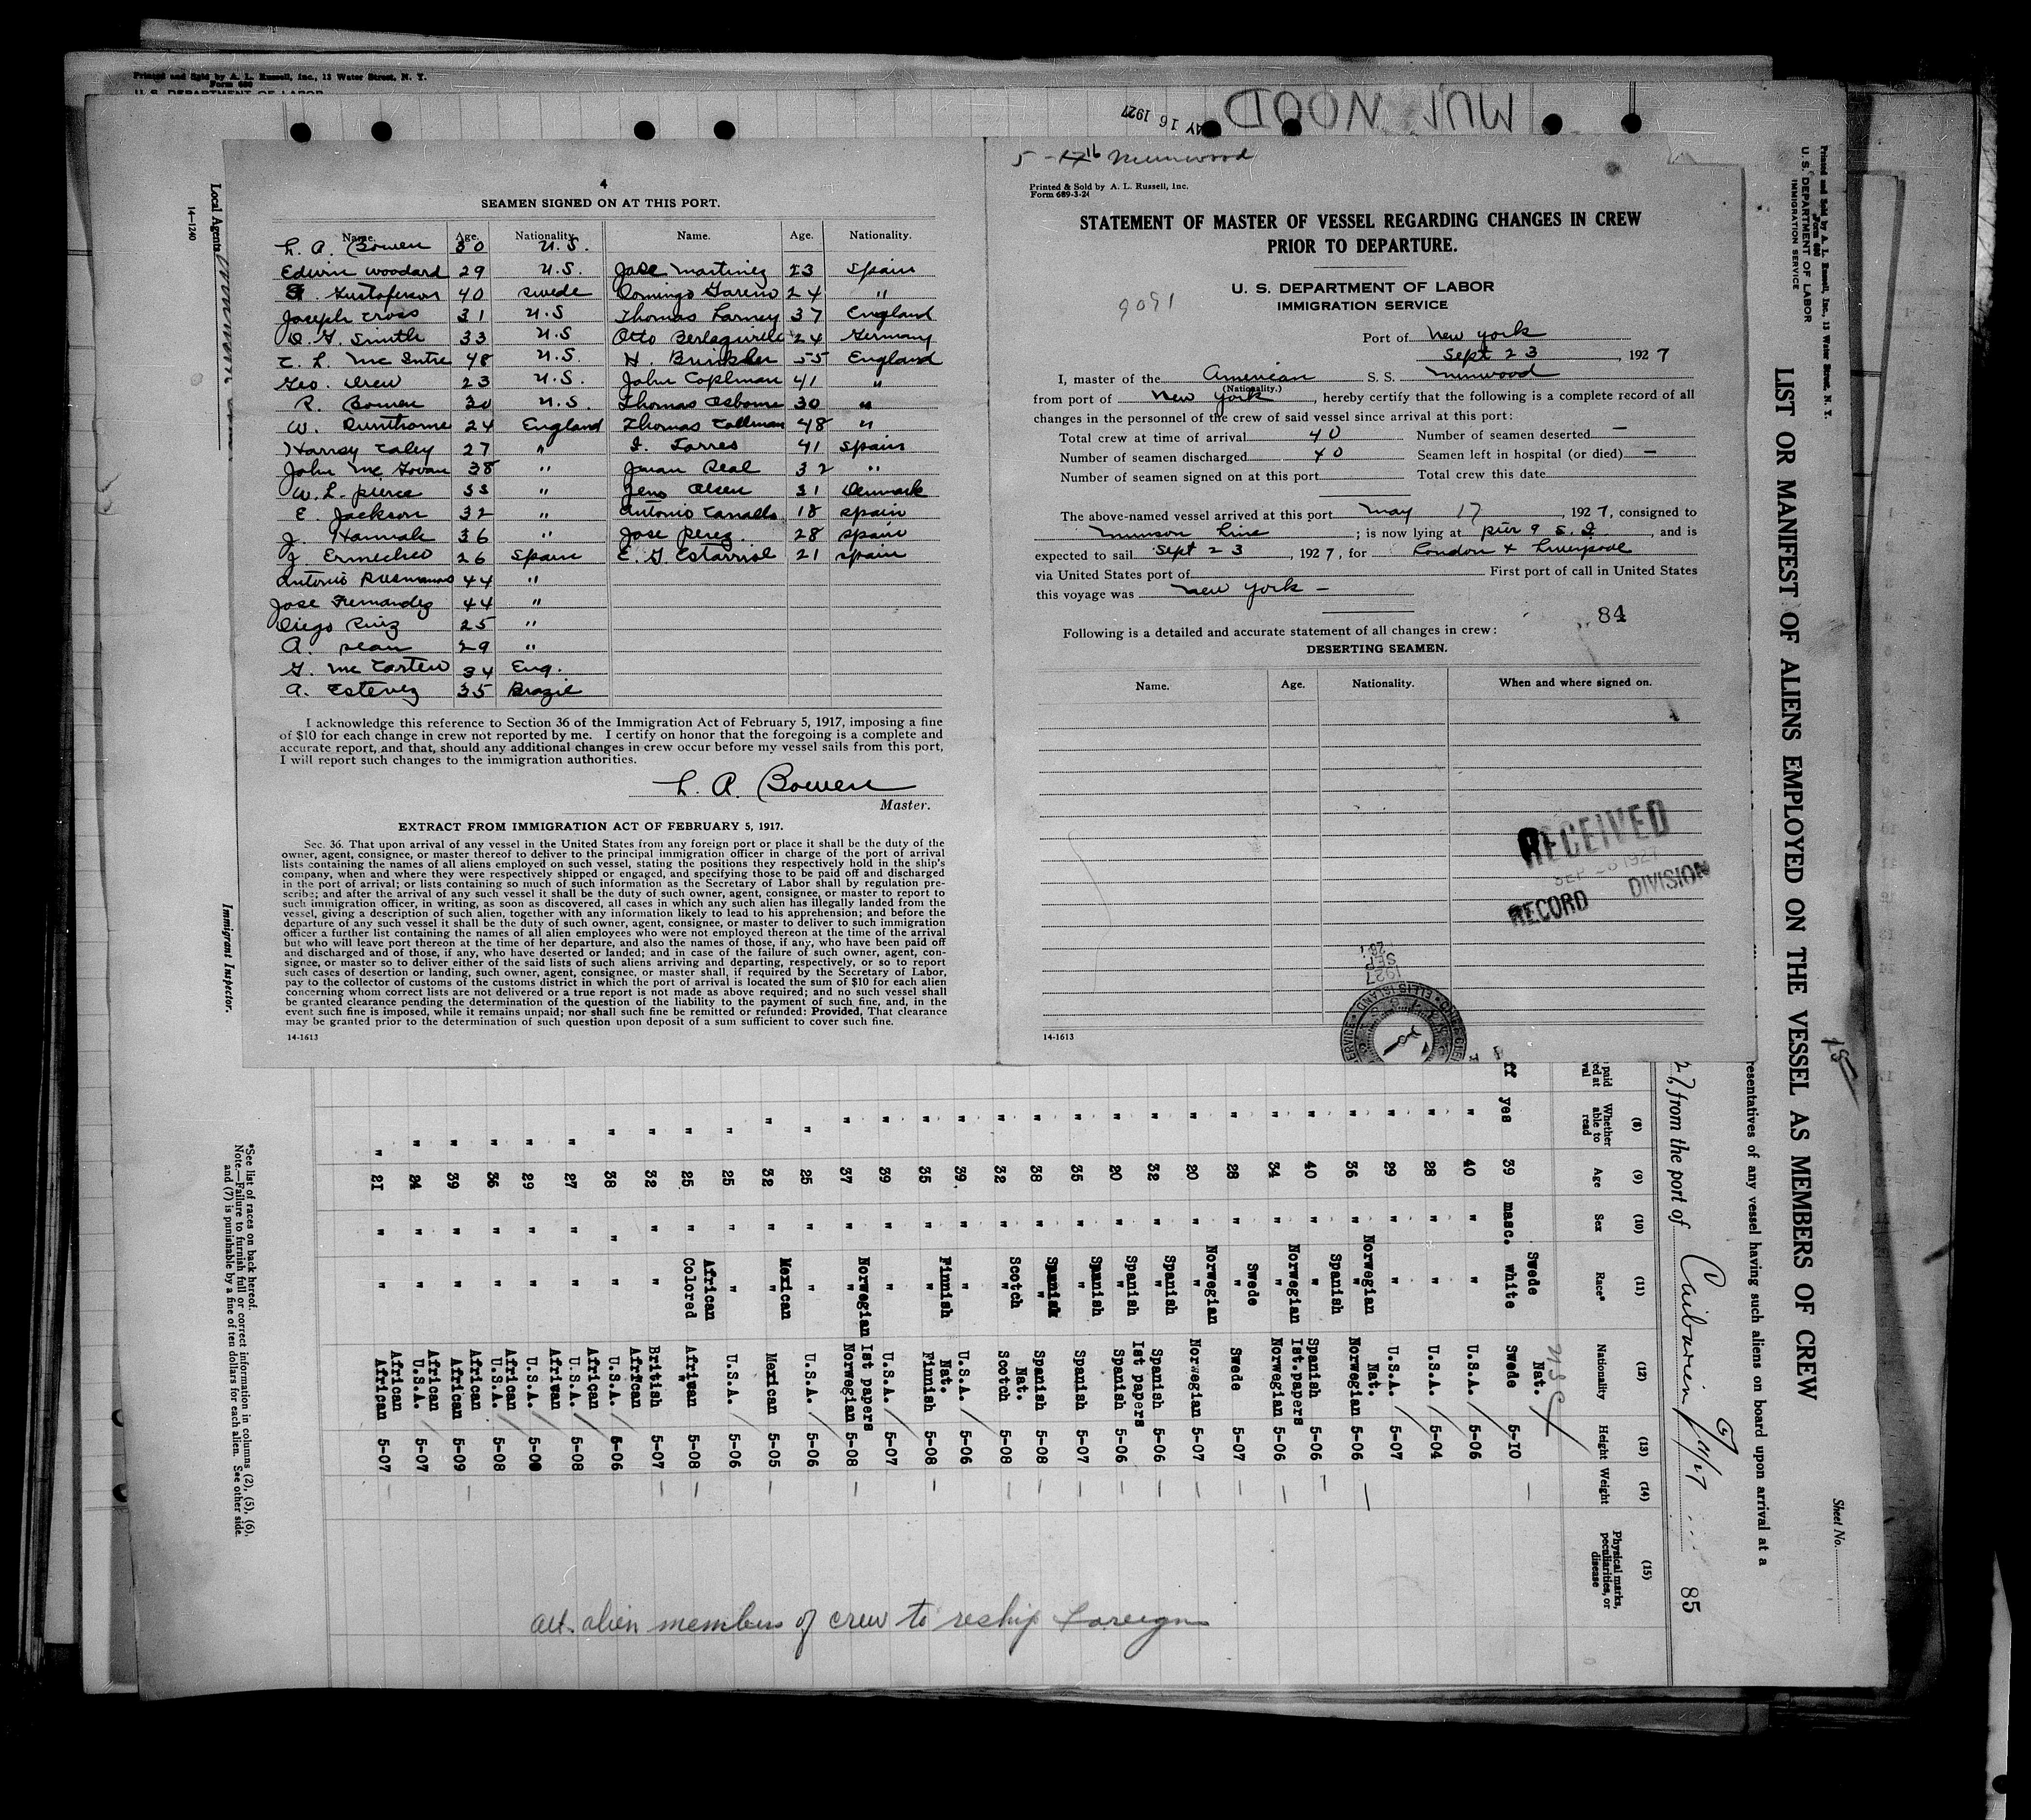 Printed and Sold by A. L. Russell, Inc., 13 Water Street, N. Y.
Form 680
U. S. DEPARTMENT OF LABOR
MUNWOOD
MAY 16 1927
Local Agents
14-1240
Immigrant Inspector.
4
SEAMEN SIGNED ON AT THIS PORT.
Name. Age. Nationality. Name. Age. Nationality.
L. A. Bowen 30 U.S.
Edwin Woodard 29 U.S. Jose Martinez 23 Spain
Gustaferson 40 Swede Domingo 24 "
Joseph Cross 31 U.S Thomas 37 England
Smith 33 U.S Otto 24 Germany
C. L. Mc Intre 48 U.S. H. Brinkler 55 England
Geo. Drew 23 U.S. John Coplman 41 "
R. Bowen 30 U.S. Thomas Osborne 30 "
W. 24 England Thomas Collman 48 "
Harvey Caley 27 " Torres 41 Spain
John Mc Govan 38 " Juan Real 32 "
W. L. Pierce 33 " Jens Olsen 31 Denmark
E. Jackson 32 " Antonio 18 Spain
J. Hannah 36 " Jose Perez 28 Spain
J. 26 Spain E. G Estarriol 21 Spain
Antonio 44 "
Jose Fernandez 44 "
Diego Ruiz 25 "
A. 29 "
Mc Carten 34 Eng.
A. Estevez 35 Brazil
I acknowledge this reference to Section 36 of the Immigration Act of February 5, 1917, imposing a fine
of $10 for each change in crew not reported by me. I certify on honor that the foregoing is a complete and
accurate report, and that, should any additional changes in crew occur before my vessel sails from this port,
I will report such changes to the immigration authorities.
L. A. Bowen
Master.
EXTRACT FROM IMMIGRATION ACT OF FEBRUARY 5, 1917.
Sec. 36. That upon arrival of any vessel in the United States from any foreign port or place it shall be the duty of the
owner, agent, consignee, or master thereof to deliver to the principal immigration officer in charge of the port of arrival
lists containing the names of all aliens employed on such vessel, stating the positions they respectively hold in the ship's
company, when and where they were respectively shipped or engaged, and specifying those to be paid off and discharged
in the port of arrival; or lists containing so much of such information as the Secretary of Labor shall by regulation pre-
scribe; and after the arrival of any such vessel it shall be the duty of such owner, agent, consignee, or master to report to
such immigration officer, in writing, as soon as discovered, all cases in which any such alien has illegally landed from the
vessel, giving a description of such alien, together with any information likely to lead to his apprehension; and before the
departure of any such vessel it shall be the duty of such owner, agent, consignee, or master to deliver to such immigration
officer a further list containing the names of all alien employees who were not employed thereon at the time of the arrival
but who will leave port thereon at the time of her departure, and also the names of those, if any, who have been paid off
and discharged and of those, if any, who have deserted or landed; and in case of the failure of such owner, agent, con-
signee, or master so to deliver either of the said lists of such aliens arriving and departing, respectively, or so to report
such cases of desertion or landing, such owner, agent, consignee, or master shall, if required by the Secretary of Labor,
pay to the collector of customs of the customs district in which the port of arrival is located the sum of $10 for each alien
concerning whom correct lists are not delivered or a true report is not made as above required; and no such vessel shall
be granted clearance pending the determination of the question of the liability to the payment of such fine, and, in the
event such fine is imposed, while it remains unpaid; nor shall such fine be remitted or refunded: Provided, That clearance
may be granted prior to the determination of such question upon deposit of a sum sufficient to cover such fine.
14-1613
5-17 16 Munwood
Printed & Sold by A. L. Russell, Inc.
Form 689-3-24
STATEMENT OF MASTER OF VESSEL REGARDING CHANGES IN CREW
PRIOR TO DEPARTURE.
U. S. DEPARTMENT OF LABOR
IMMIGRATION SERVICE
9091
Port of New York
Sept 23, 1927
I, master of the American S. S. Munwood
(Nationality.)
from port of New York, hereby certify that the following is a complete record of all
changes in the personnel of the crew of said vessel since arrival at this port:
Total crew at time of arrival 40 Number of seamen deserted —
Number of seamen discharged 40 Seamen left in hospital (or died) —
Number of seamen signed on at this port Total crew this date
The above-named vessel arrived at this port May 17, 1927, consigned to
Munson Line; is now lying at Pier 9 S. I., and is
expected to sail Sept 23, 1927, for London & Liverpool
via United States port of First port of call in United States
this voyage was New York —
84
Following is a detailed and accurate statement of all changes in crew:
DESERTING SEAMEN.
Name. Age. Nationality. When and where signed on.
RECEIVED
SEP 23 1927
RECORD DIVISION
SEP
1927
ELLIS ISLAND
14-1613
Printed and Sold by A. L. Russell, Inc., 13 Water Street, N. Y.
Form 680
U. S. DEPARTMENT OF LABOR
IMMIGRATION SERVICE
LIST OR MANIFEST OF ALIENS EMPLOYED ON THE VESSEL AS MEMBERS OF CREW
Sheet No.
resentatives of any vessel having such aliens on board upon arrival at a
27, from the port of Caibarien
85
(8) (9) (10) (11) (12) (13) (14) (15)
Whether able to read Age Sex Race* Nationality Height Weight Physical marks, peculiarities, or disease
yes 39 masc. Swede white Nat. Swede 5-10
" 40 " " U.S.A. 5-06
" 28 " " U.S.A. 5-04
" 29 " " U.S.A. 5-07
" 36 " Norwegian " Nat. Norwegian 5-06
" 40 " Spanish " Spanish 5-06
" 34 " Norwegian " Ist.papers Norwegian 5-06
" 28 " Swede " Swede 5-07
" 20 " Norwegian " Norwegian 5-07
" 32 " Spanish " Spanish 5-06
" 20 " Spanish " Ist papers Spanish 5-06
" 35 " Spanish " Spanish 5-07
" 38 " Spanish " Spanish 5-08
" 32 " Scotch " Nat. Scotch 5-08
" 39 " " U.S.A. 5-06
" 35 " Finnish " Nat. Finnish 5-08
" 39 " " U.S.A. 5-07
" 37 " Norwegian " Ist papers Norwegian 5-08
" 25 " " U.S.A. 5-06
" 32 " Mexican " Mexican 5-05
" 25 " " U.S.A. 5-06
" 25 " African Colored African " 5-08
" 32 " " British African 5-07
" 38 " " U.S.A. African 5-06
" 27 " " U.S.A. African 5-08
" 29 " " U.S.A. African 5-00
" 36 " " U.S.A. African 5-08
" 39 " " African 5-09
" 24 " " African U.S.A. 5-07
" 21 " " African African 5-07
All alien members of crew to reship foreign
*See list of races on back hereof.
Note.—Failure to furnish full or correct information in columns (2), (5), (6),
and (7) is punishable by a fine of ten dollars for each alien. See other side.